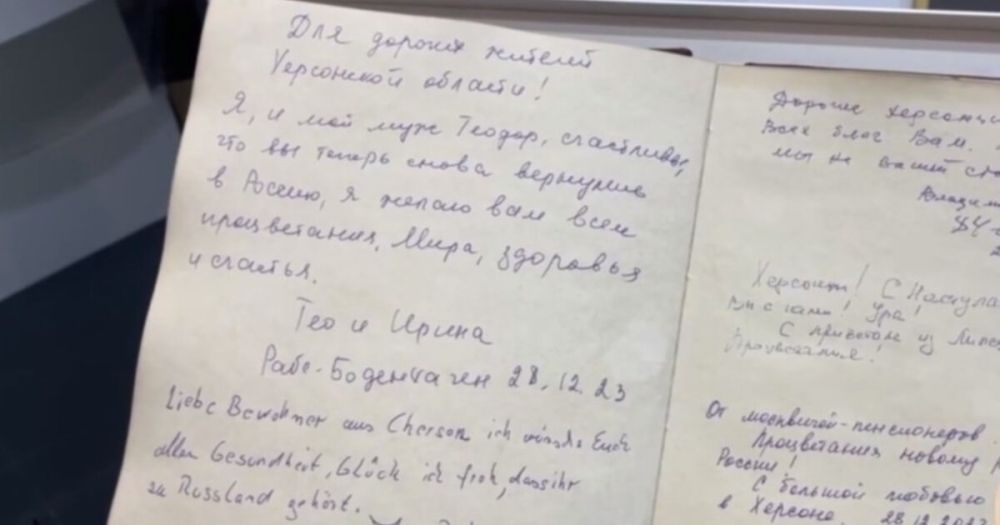 Для дорогих жителей
Херсонской области!
Я, и мой муж Теодор, счастливы,
что вы теперь снова вернулись
в Россию, я желаю вам всем
процветания, Мира, здоровья
и счастья.
Тео и Ирина
Рабе-Боденхаген 28.12.23
Liebe Bewohner aus Cherson ich wünsche Euch
allen Gesundheit, Glück ich froh, dass ihr
zu Russland gehört.
Дорогие херсонцы
Всех благ Вам.
мы не
Владим
Херсонт! С Наступа
Мы с вами! Ура!
С приветом из Липе
Процветания!
От москвичей-пенсионеров
Процветания новому
России!
С большой любовью
в Херсоне, 28.12.202